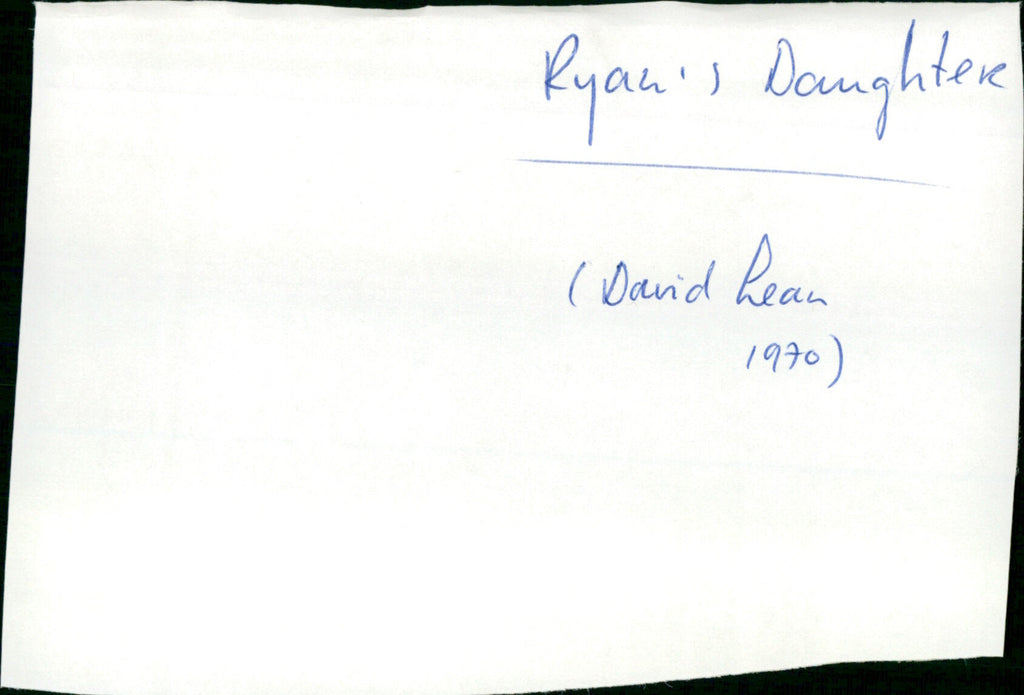 Ryan's Daughter
(David Lean
1970)